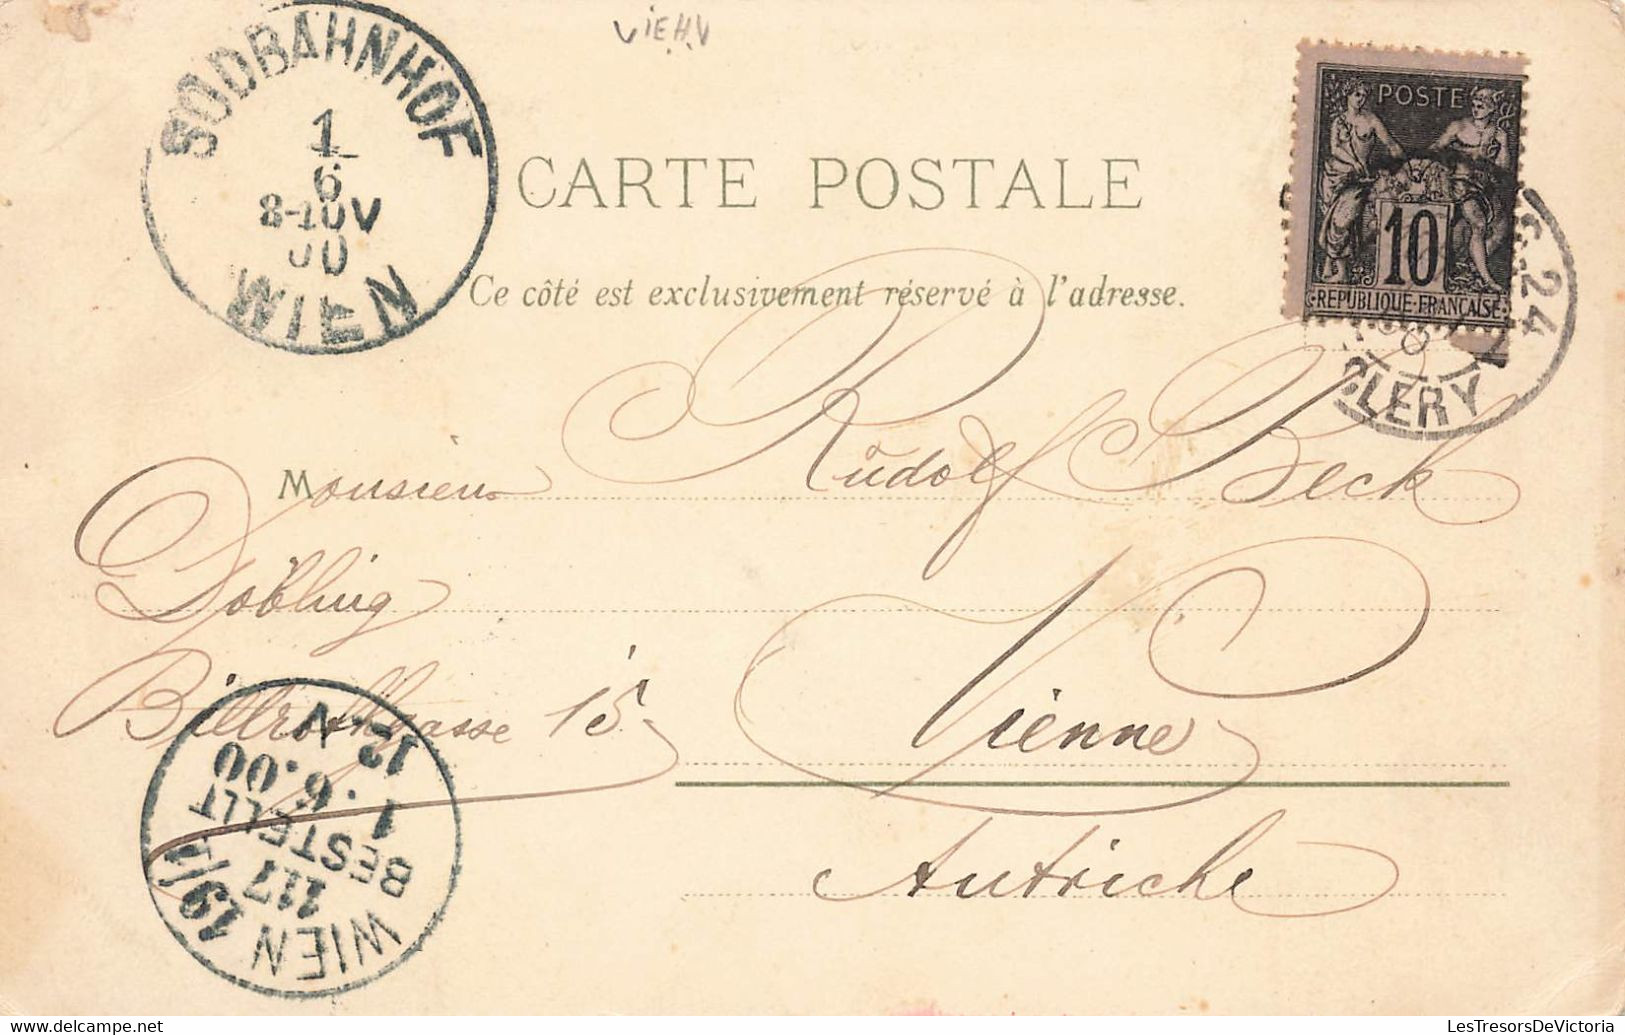 SÜDBAHNHOF
1
6
8-10V
00
WIEN
POSTE
10
REPUBLIQUE·FRANÇAISE
24
CLERY
CARTE POSTALE
Ce côté est exclusivement réservé à l'adresse.
Monsieur Rudolf Beck
Döbling
Billrothgasse 15
Vienne
Autriche
WIEN 19/1
117
BESTELLT
1.6.00
12
V
LesTresorsDeVictoria